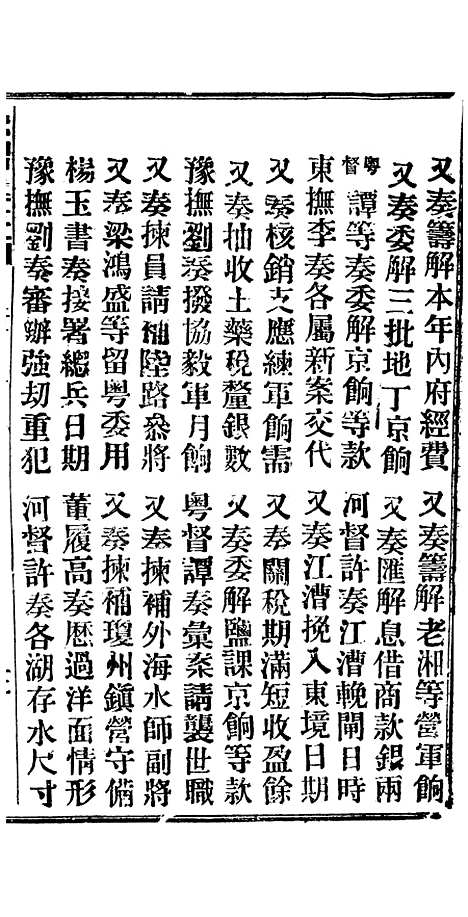 又奏籌解本年內府經費　又奏籌解老湘等營軍餉
又奏委解三批地丁京餉　又奏匯解息借商款銀兩
粵督譚等奏委解京餉等款　河督許奏江漕輓閘日時
東撫李奏各屬新案交代　又奏江漕挽入東境日期
又奏核銷支應練軍餉需　又奏關稅期滿短收盈餘
又奏抽收土藥稅釐銀數　又奏委解鹽課京餉等款
豫撫劉奏撥協毅軍月餉　粵督譚奏彙案請襲世職
又奏揀員請補陸路叅將　又奏揀補外海水師副將
又奏梁鴻盛等留粵委用　又奏揀補瓊州鎮營守備
楊玉書奏接署總兵日期　董履高奏歷過洋面情形
豫撫劉奏審辦強刧重犯　河督許奏各湖存水尺寸